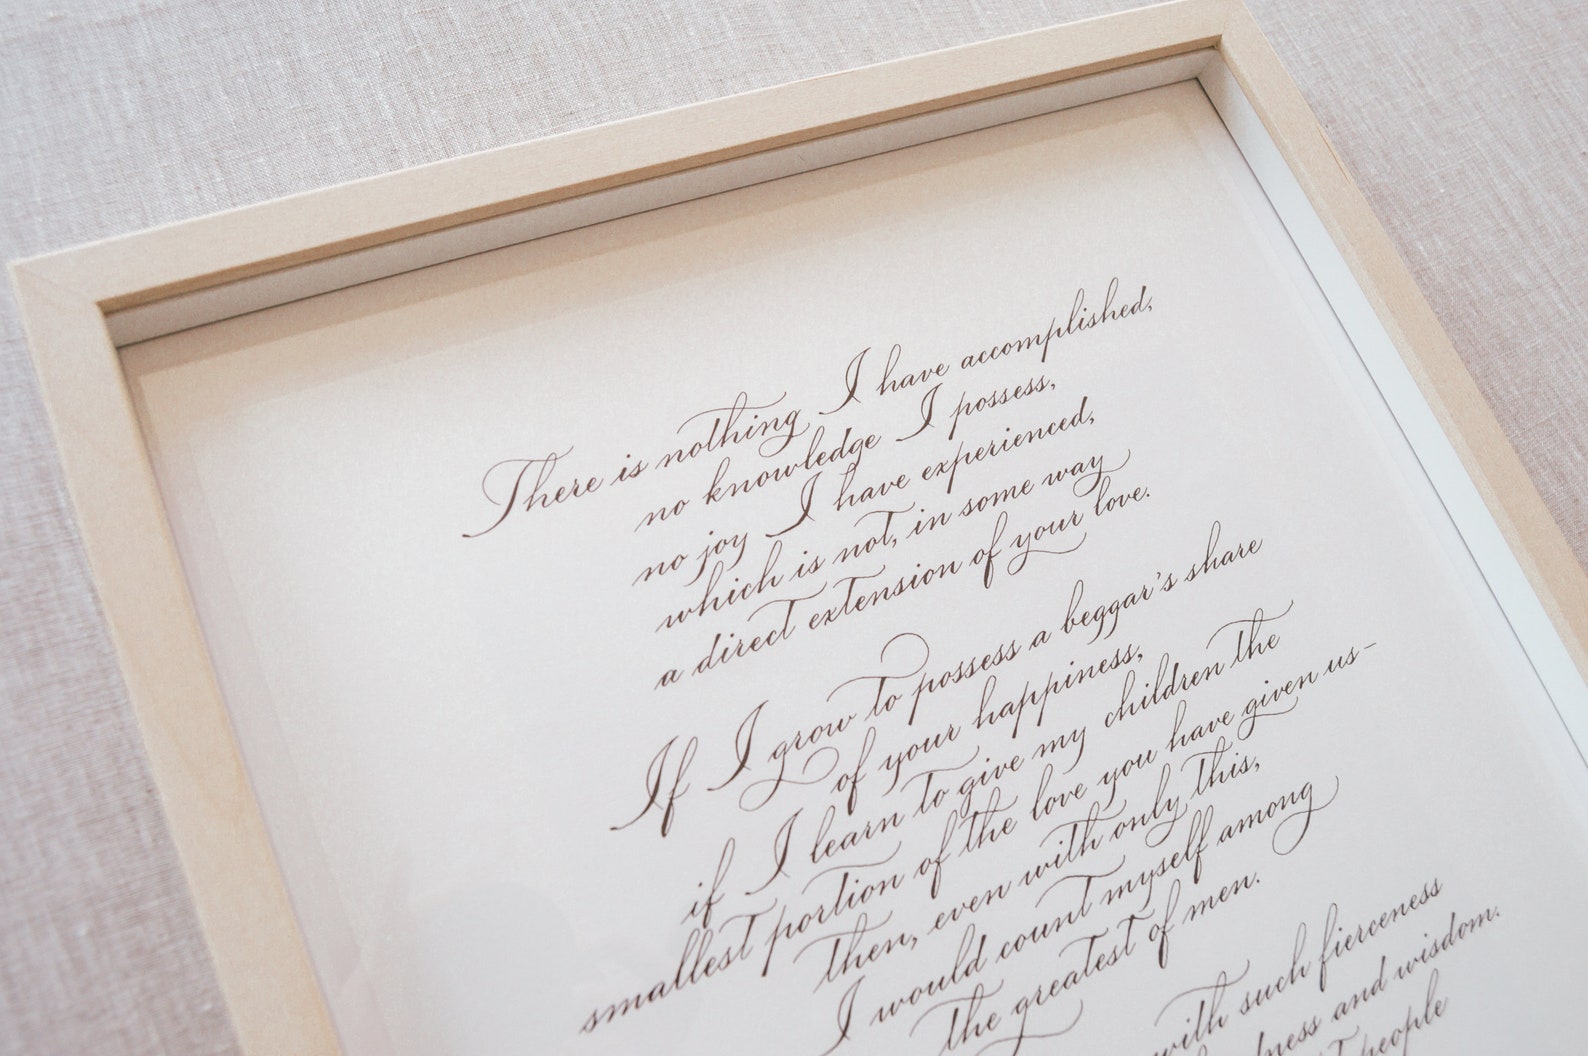 There is nothing I have accomplished,
no knowledge I possess,
no joy I have experienced,
which is not, in some way
a direct extension of your love.
If I grow to possess a beggar's share
of your happiness,
if I learn to give my children the
smallest portion of the love you have given us-
then, even with only this,
I would count myself among
the greatest of men.
with such fierceness
and wisdom.
people